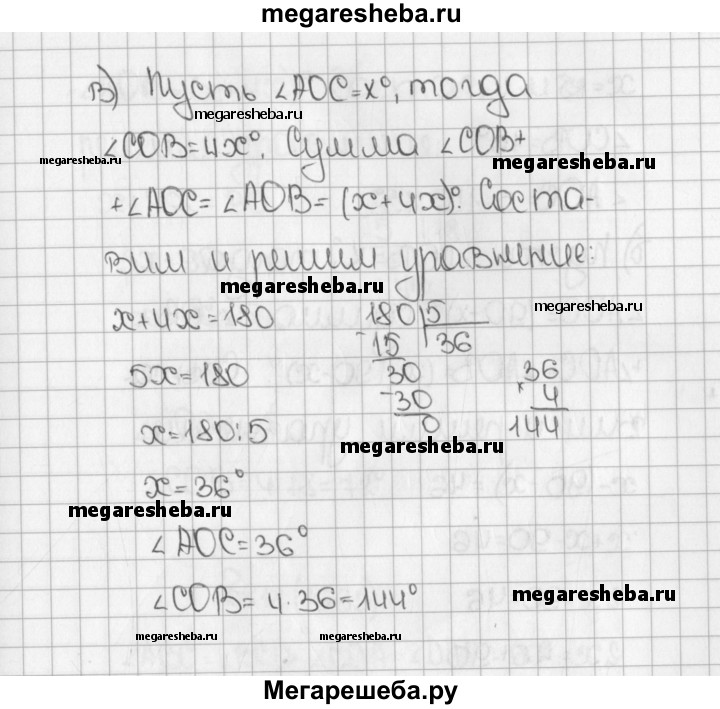 megaresheba.ru
в) Пусть ∠AOC=x°, тогда
megaresheba.ru
∠COB=4x°. Сумма ∠COB+
megaresheba.ru megaresheba.ru
+∠AOC=∠AOB=(x+4x)°. Соста-
вим и решим уравнение:
megaresheba.ru megaresheba.ru
x+4x=180 180 5
-15 36
5x=180 30 36
-30 × 4
x=180:5 0 144
megaresheba.ru
x=36°
megaresheba.ru
∠AOC=36°
∠COB=4·36=144°
megaresheba.ru
megaresheba.ru megaresheba.ru
Мегарешеба.ру